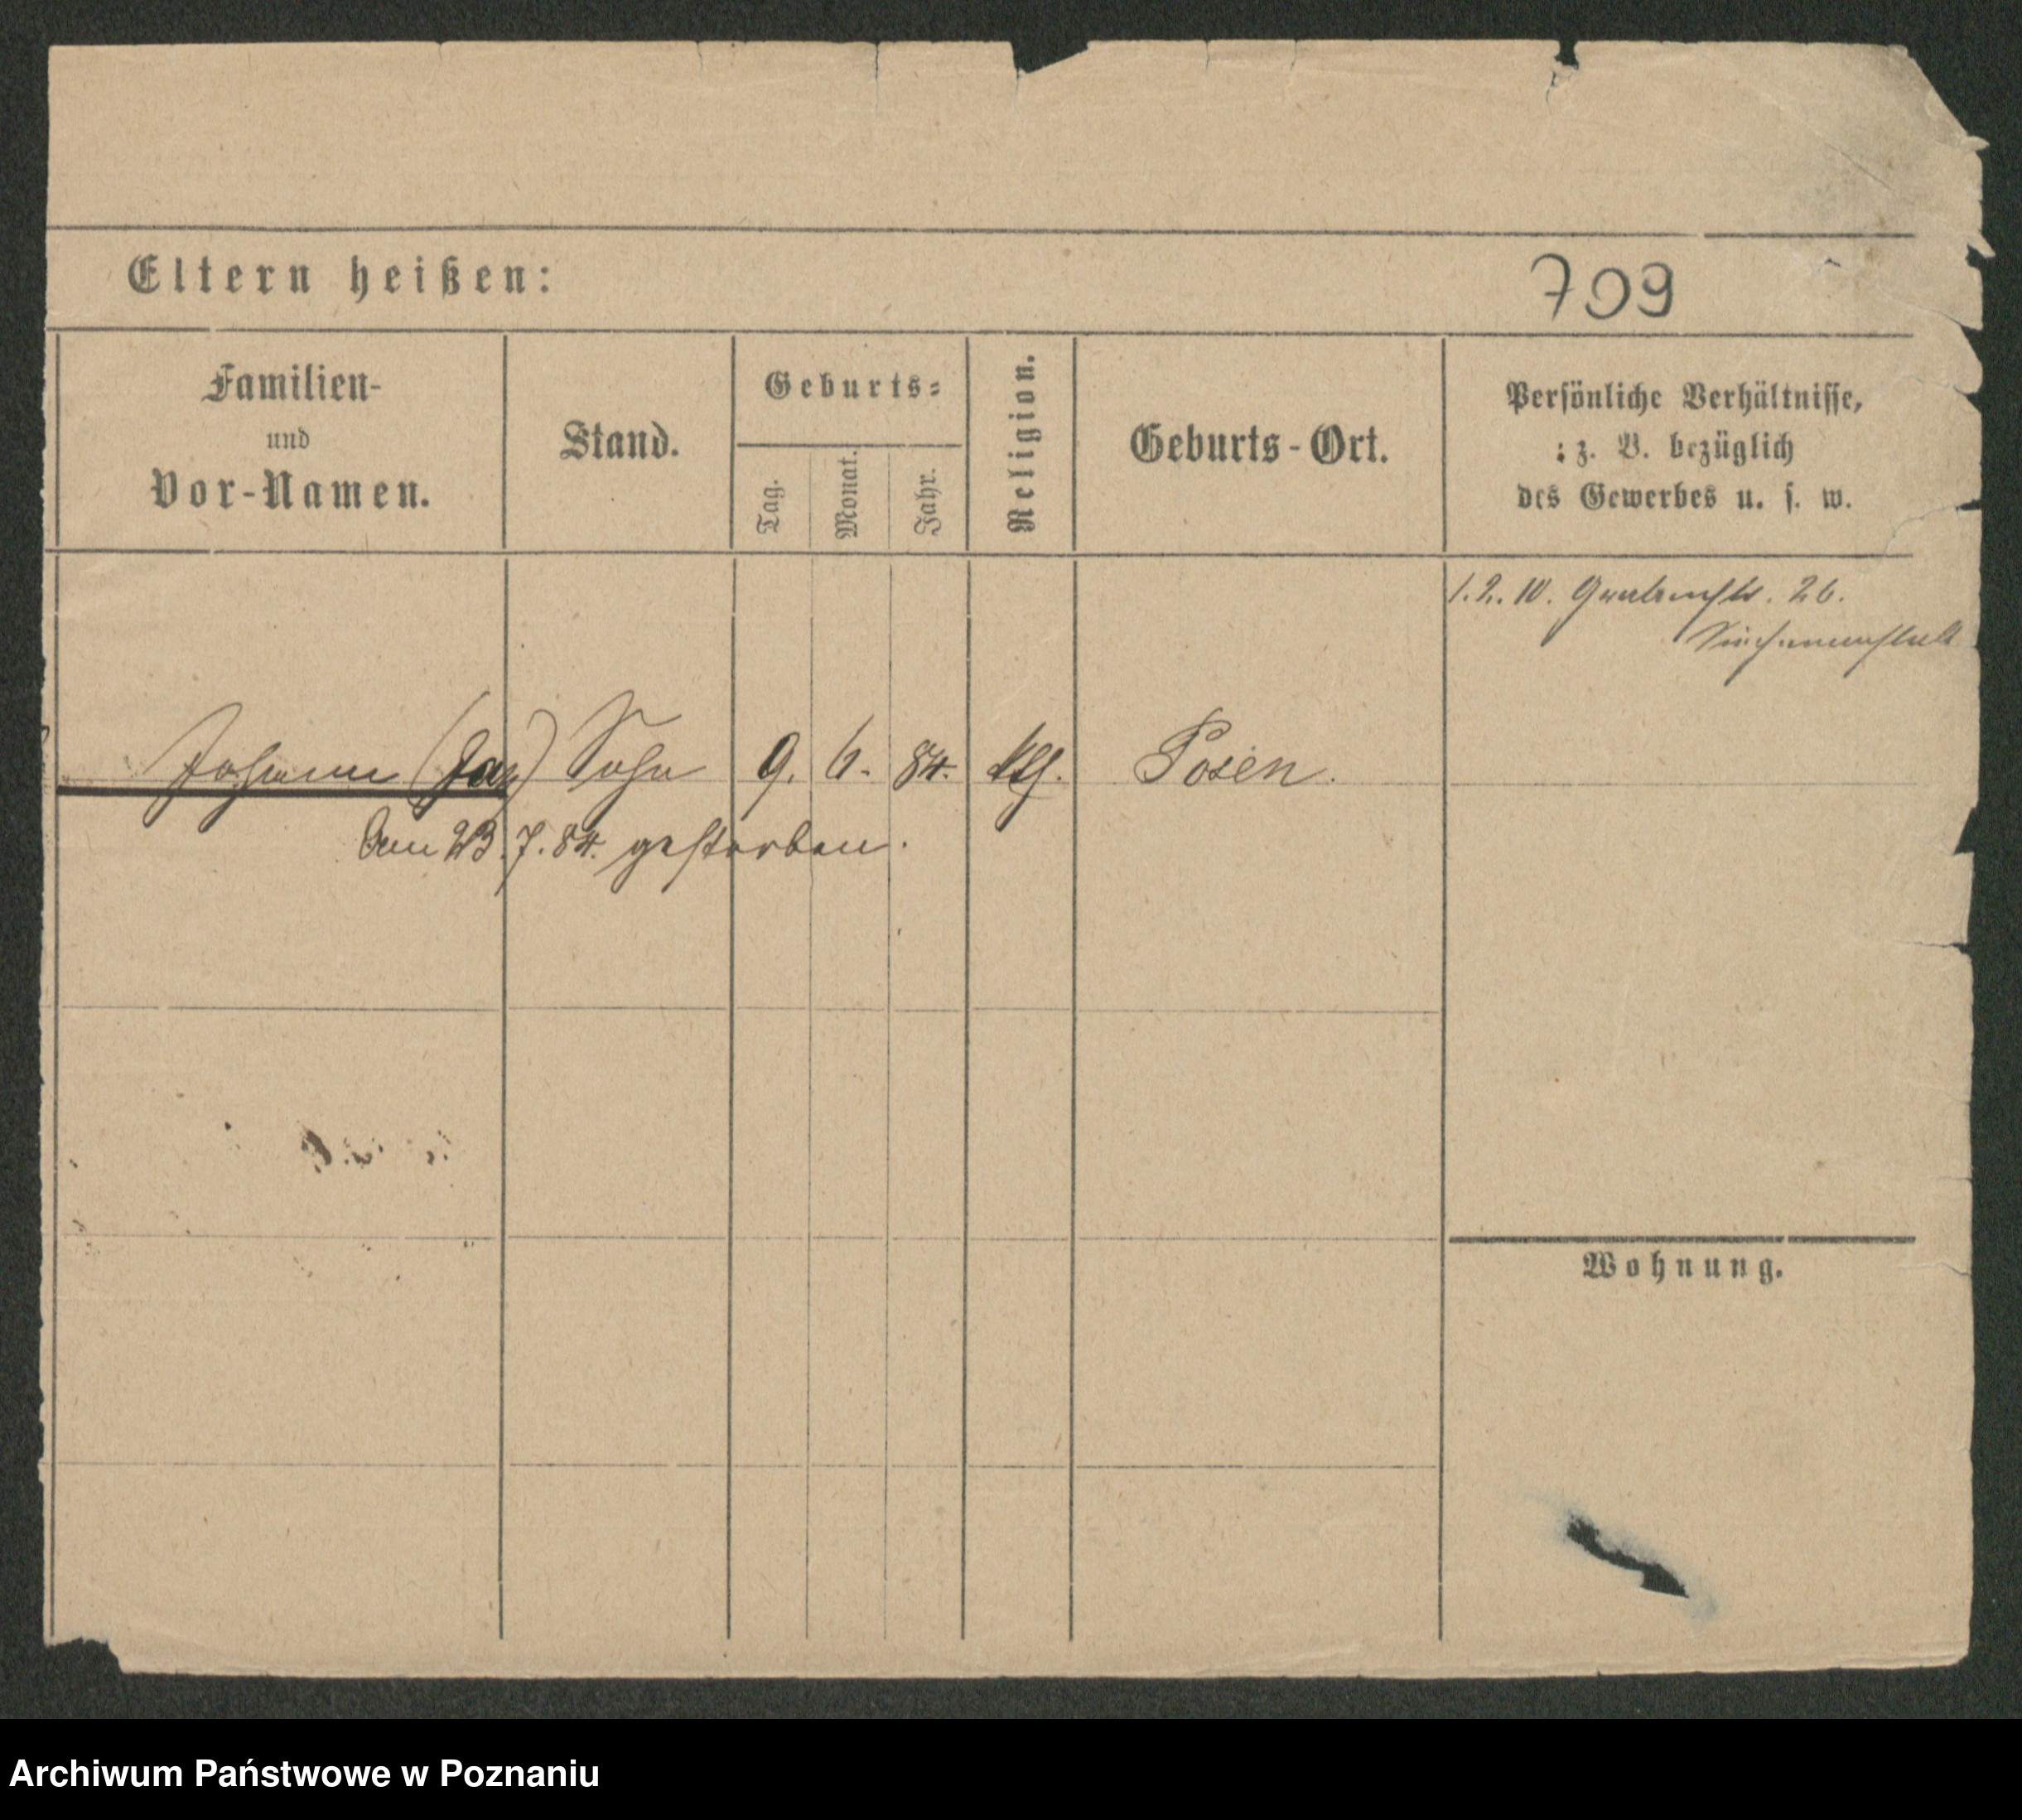 Eltern heißen:
709
Familien-
und
Vor-Namen.
Stand.
Geburts-
Tag.
Monat.
Jahr.
Religion.
Geburts-Ort.
Persönliche Verhältnisse,
: z. B. bezüglich
des Gewerbes u. s. w.
1. 2. 10. 26.
Johann (Jan) Sohn 9. 6. 84. kth. Posen.
23. 7. 84. gestorben.
Wohnung.
Archiwum Państwowe w Poznaniu